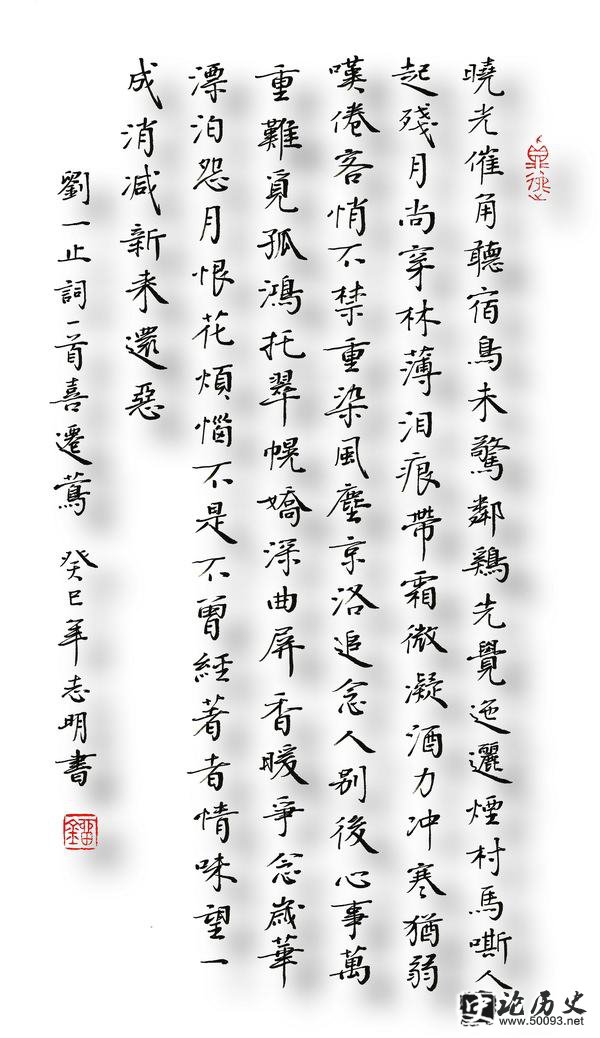 曉光催角聽宿鳥未驚鄰鷄先覺迤邐煙村馬嘶人
起殘月尚穿林薄泪痕帶霜微凝酒力冲寒猶弱
嘆倦客悄不禁重染風塵京洛追念人别後心事萬
重難覓孤鴻托翠幌嬌深曲屏香暖爭念歲華
漂泊怨月恨花煩惱不是不曾經著者情味望一
成消减新来還惡
劉一止詞一首喜遷鶯 癸巳年志明書
论历史
www.50093.net